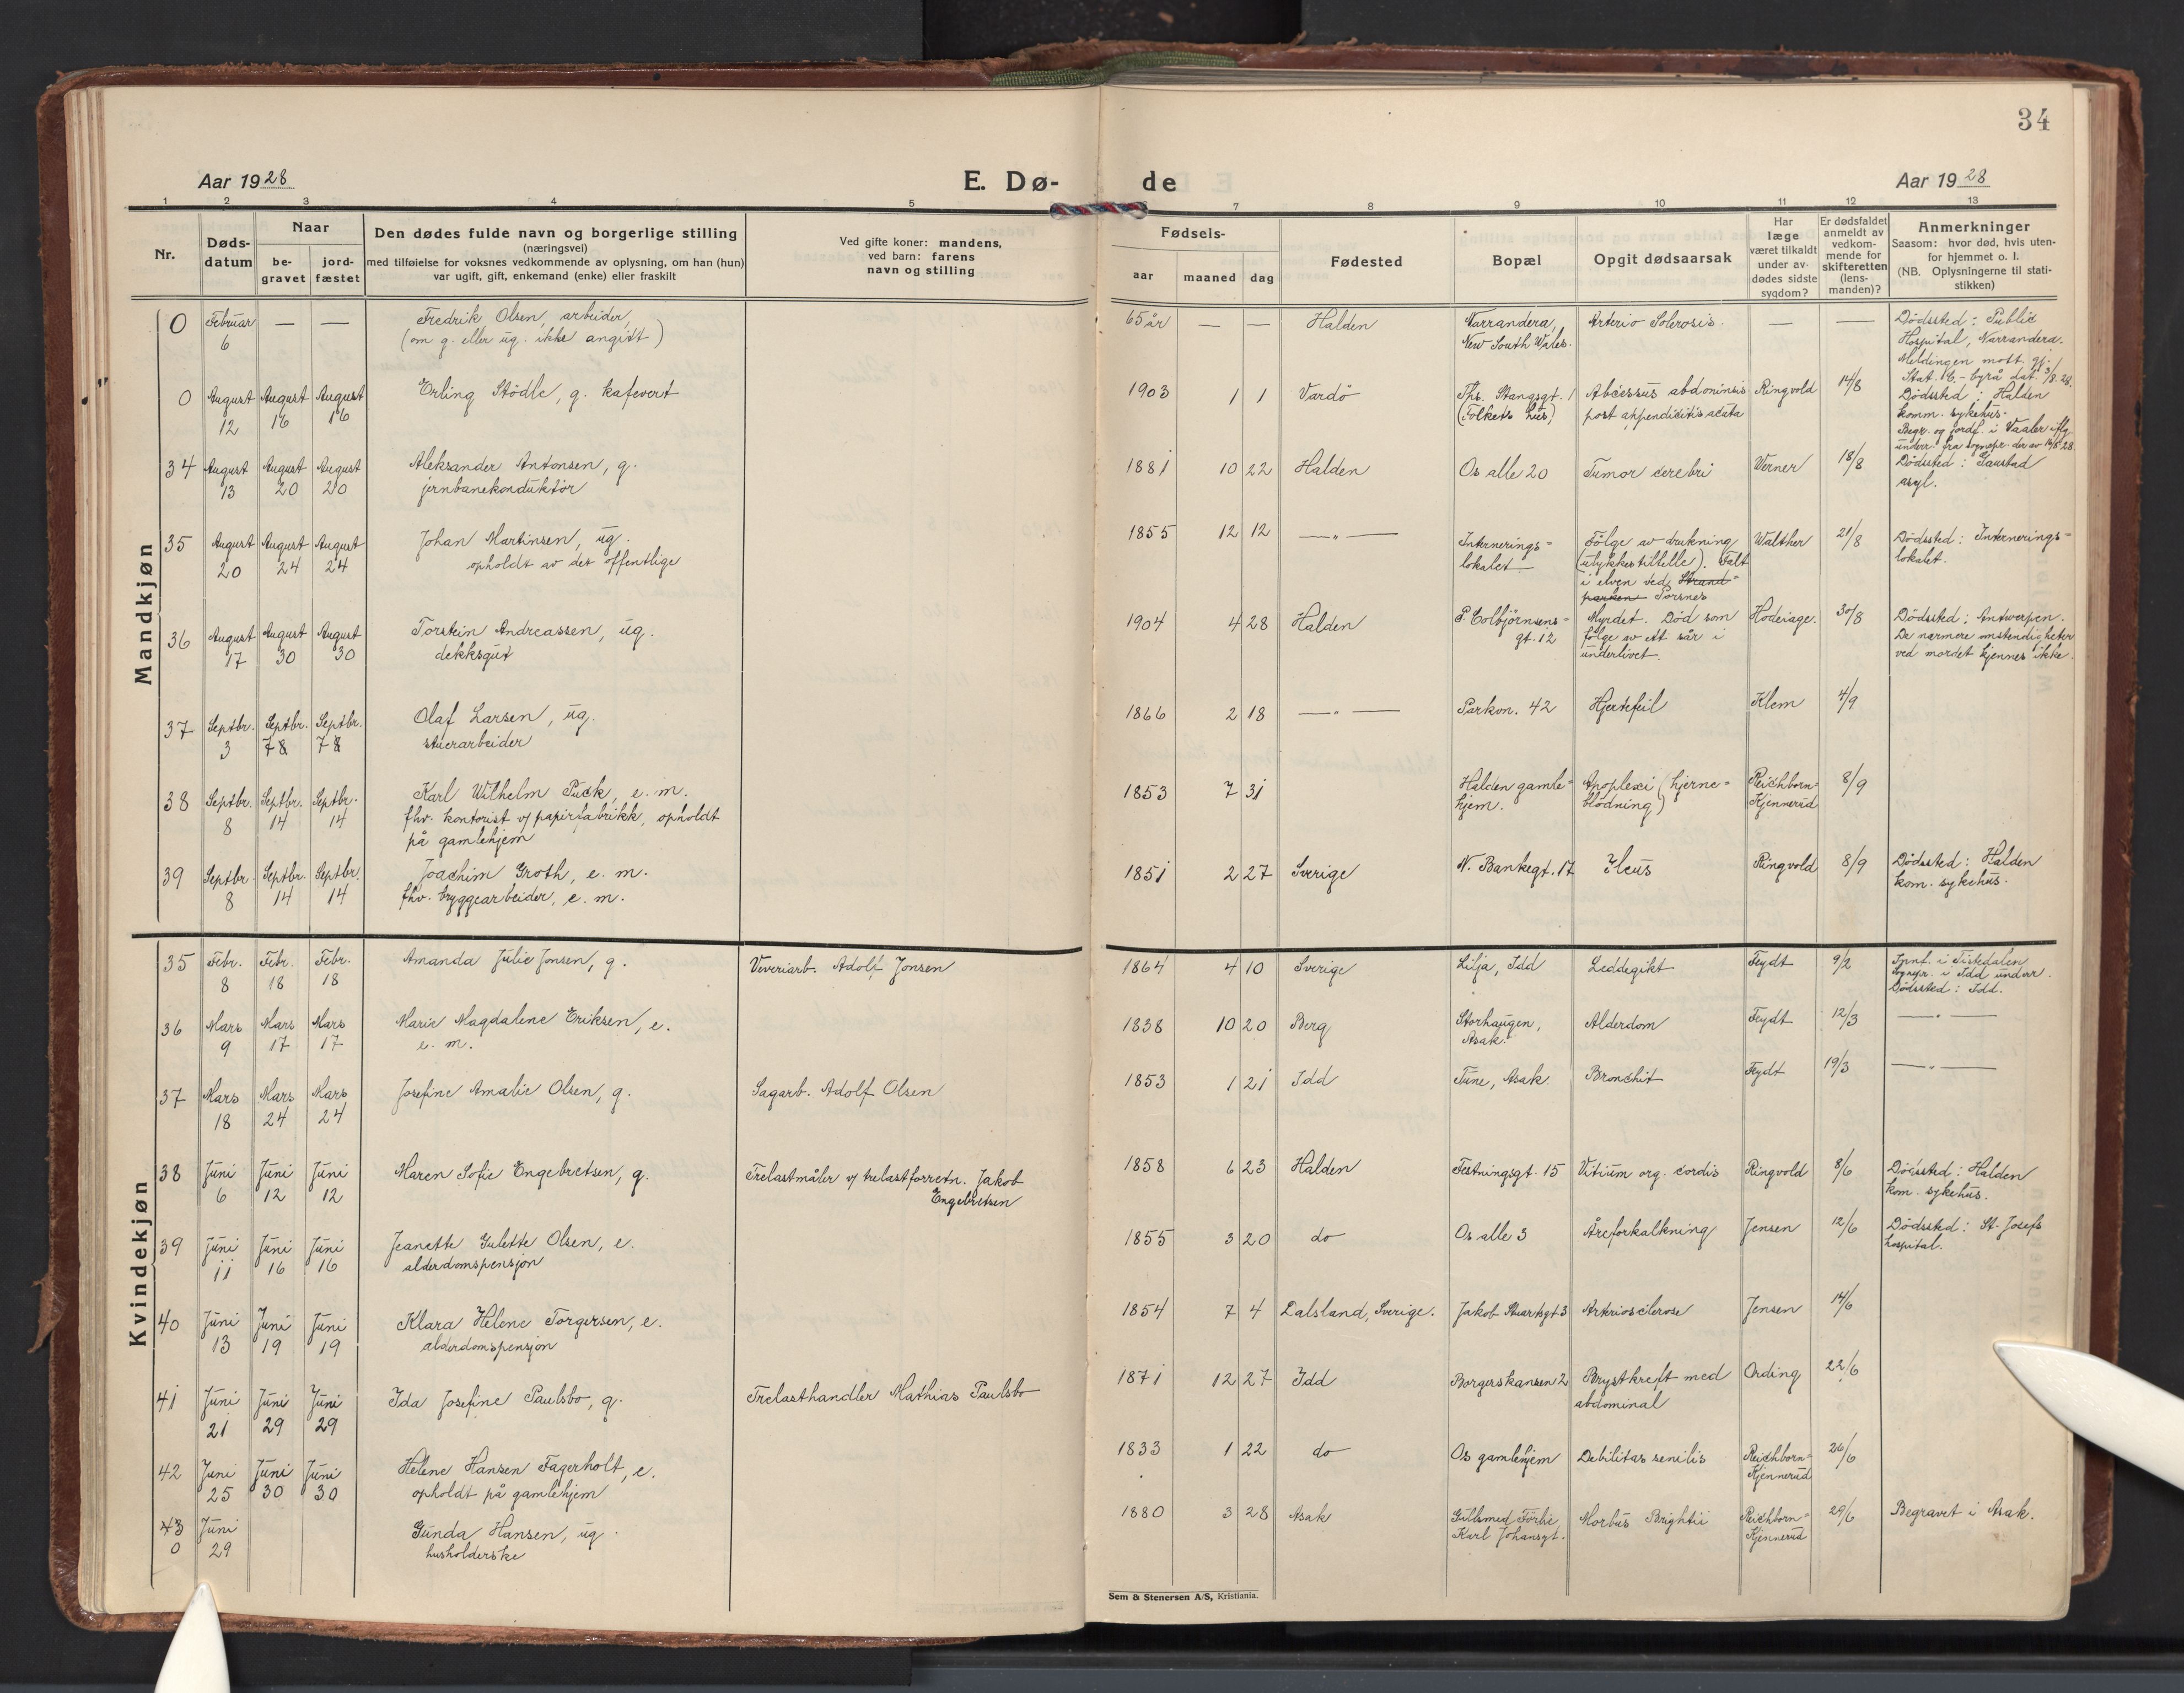 34
Aar 1928
E. Dø-
de
Aar 1928
1 2 3 4 5 7 8 9 10 11 12 13
Nr.
Døds-
datum
Naar
be-
gravet
jord-
fæstet
Den dødes fulde navn og borgerlige stilling
(næringsvei)
med tilføielse for voksnes vedkommende av oplysning, om han (hun)
var ugift, gift, enkemand (enke) eller fraskilt
Ved gifte koner: mandens,
ved barn: farens
navn og stilling
Fødsels-
aar
maaned
dag
Fødested
Bopæl
Opgit dødsaarsak
Har
læge
været tilkaldt
under av-
dødes sidste
sygdom?
Er dødsfaldet
anmeldt av
vedkom-
mende for
skifteretten
(lens-
manden)?
Anmerkninger
Saasom: hvor død, hvis uten-
for hjemmet o. l.
(NB. Oplysningerne til stati-
stikken)
Mandkjøn
0 Februar 6 — — Fredrik Olsen, arbeider,
(om g. eller ug. ikke angitt)
65 år — — Halden
Narrandera,
New South Wales.
Arterio Solerosis.
— —
Dödssted: Public
Hospital, Narrandera.
Meldingen mott. gj.
Stat. 16.-byrå dat. 3/8.28.
0 August 12 August 16 August 16
Erling Stödle, g. kafevert
1903 1 1 Vardö
Ths. Stangsgt. 1
(Folkets hus)
Abcessus abdominis
post appendicitis acuta
Ringvold 14/8
Dödssted: Halden
komm. sykehus.
Begr. og jordf. i Vaaler iflg.
underr. fra sognepr. der av 16/8 28.
34 August 13 August 20 August 20
Aleksander Antonsen, g.
jernbanekonduktör
1881 10 22 Halden
Os alle 20
Tumor cerebri
Werner 18/8
Dödssted: Gaustad
asyl.
35 August 20 August 24 August 24
Johan Martinsen, ug.
opholdt av det offentlige
1855 12 12 —„—
Internerings-
lokalet
Fölge av drukning
(ulykkestillelle). Falt
i elven ved Strand-
parken Porsnes
Walther 21/8
Dödssted: Internerings-
lokalet.
36 August 17 August 30 August 30
Torstein Andreassen, ug.
dekksgut
1904 4 28 Halden
P. Colbjörnsens-
gt. 12
Myrdet. Död som
fölge av ett sår i
underlivet.
Hodeiage. 30/8
Dödssted: Antwerpen.
De nærmere omstendigheter
ved mordet kjennes ikke.
37 Septbr. 3 Septbr. 7 8 Septbr. 7 8
Olaf Larsen, ug.
stuerarbeider
1866 2 18 —„—
Parkvn. 42
Hjertefeil
Klem 4/9
38 Septbr. 8 Septbr. 14 Septbr. 14
Karl Wilhelm Puck, e. m.
fhv. kontorist v/ papirfabrikk, opholdt
på gamlehjem
1853 7 31
Halden gamle-
hjem.
Apoplexi (hjerne-
blödning)
Reichborn-
Kjennerud
8/9
39 Septbr. 8 Septbr. 14 Septbr. 14
Joachim Groth, e. m.
fhv. bryggearbeider, e. m.
1851 2 27 Sverige
W. Bankegt. 17
Ileus
Ringvold 8/9
Dödssted: Halden
kom. sykehus.
Kvindekjøn
35 Febr. 8 Febr. 18 Febr. 18
Amanda Julie Jonsen, g.
Veveriarb. Adolf Jonsen
1864 4 10 Sverige
Lilja, Idd
Leddegikt
Feydt 9/2
i Tistedalen
Sognepr. i Idd underr.
Dödssted: Idd.
36 Mars 9 Mars 17 Mars 17
Marie Magdalene Eriksen, e.
e. m.
1838 10 20 Berg
Storhaugen,
Asak.
Alderdom
Feydt 12/3 —„—
37 Mars 18 Mars 24 Mars 24
Josefine Amalie Olsen, g.
Sagarb. Adolf Olsen
1853 1 21 Idd
Tune, Asak
Bronchit
Feydt 19/3 —„—
38 Juni 6 Juni 12 Juni 12
Maren Sofie Engebretsen, g.
Trelastmåler v/ trelastforretn. Jakob
Engebretsen
1858 6 23 Halden
Festningsgt. 15
Vitium org. cordis
Ringvold 8/6
Dödssted: Halden
kom. sykehus.
39 Juni 11 Juni 16 Juni 16
Jeanette Gulette Olsen, e.
alderdomspensjon
1855 3 20 do
Os alle 3
Åreforkalkning
Jensen 12/6
Dödssted: St. Josefs
hospital.
40 Juni 13 Juni 19 Juni 19
Klara Helene Torgersen, e.
alderdomspensjon
1854 7 4 Dalsland, Sverige.
Jakob Stuartsgt 3
Arteriosclerose
Jensen 14/6
41 Juni 21 Juni 29 Juni 29
Ida Josefine Paulsbo, g.
Trelasthandler Mathias Paulsbo
1871 12 27 Idd
Borgerskansen 2
Brystkreft med
abdominal
Ording 22/6
42 Juni 25 Juni 30 Juni 30
Helene Hansen Fagerholt, e.
opholdt på gamlehjem
1833 1 22 do
Os gamlehjem
Debilitas senilis
Reichborn-
Kjennerud
26/6
43 0 Juni 29
Gunda Hansen, ug.
husholderske
1880 3 28 Asak
Gullsmed
Karl Johansgt.
Morbus Brightii
Reichborn-
Kjennerud
29/6
Begravet i Asak.
Sem & Stenersen A/S, Kristiania.